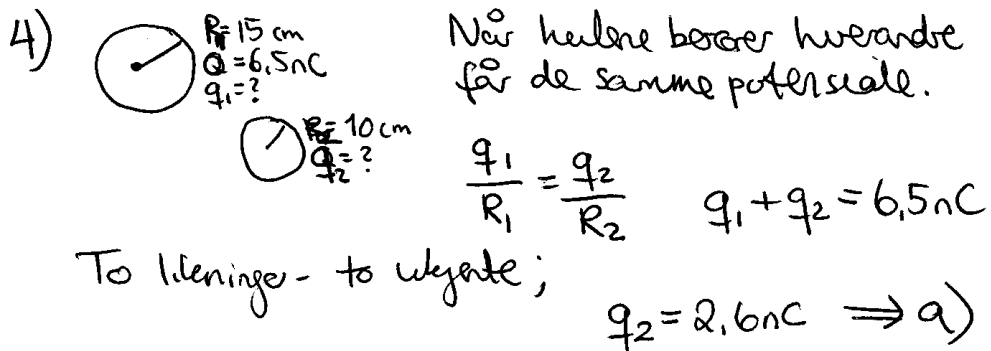 4)
R₁=15 cm
Q=6,5nC
q₁=?
R₂=10 cm
q₂=?
Når kulene berører hverandre
får de samme potensiale.
q₁/R₁ = q₂/R₂
q₁+q₂=6,5nC
To likninger - to ukjente;
q₂=2,6nC ⇒ a)